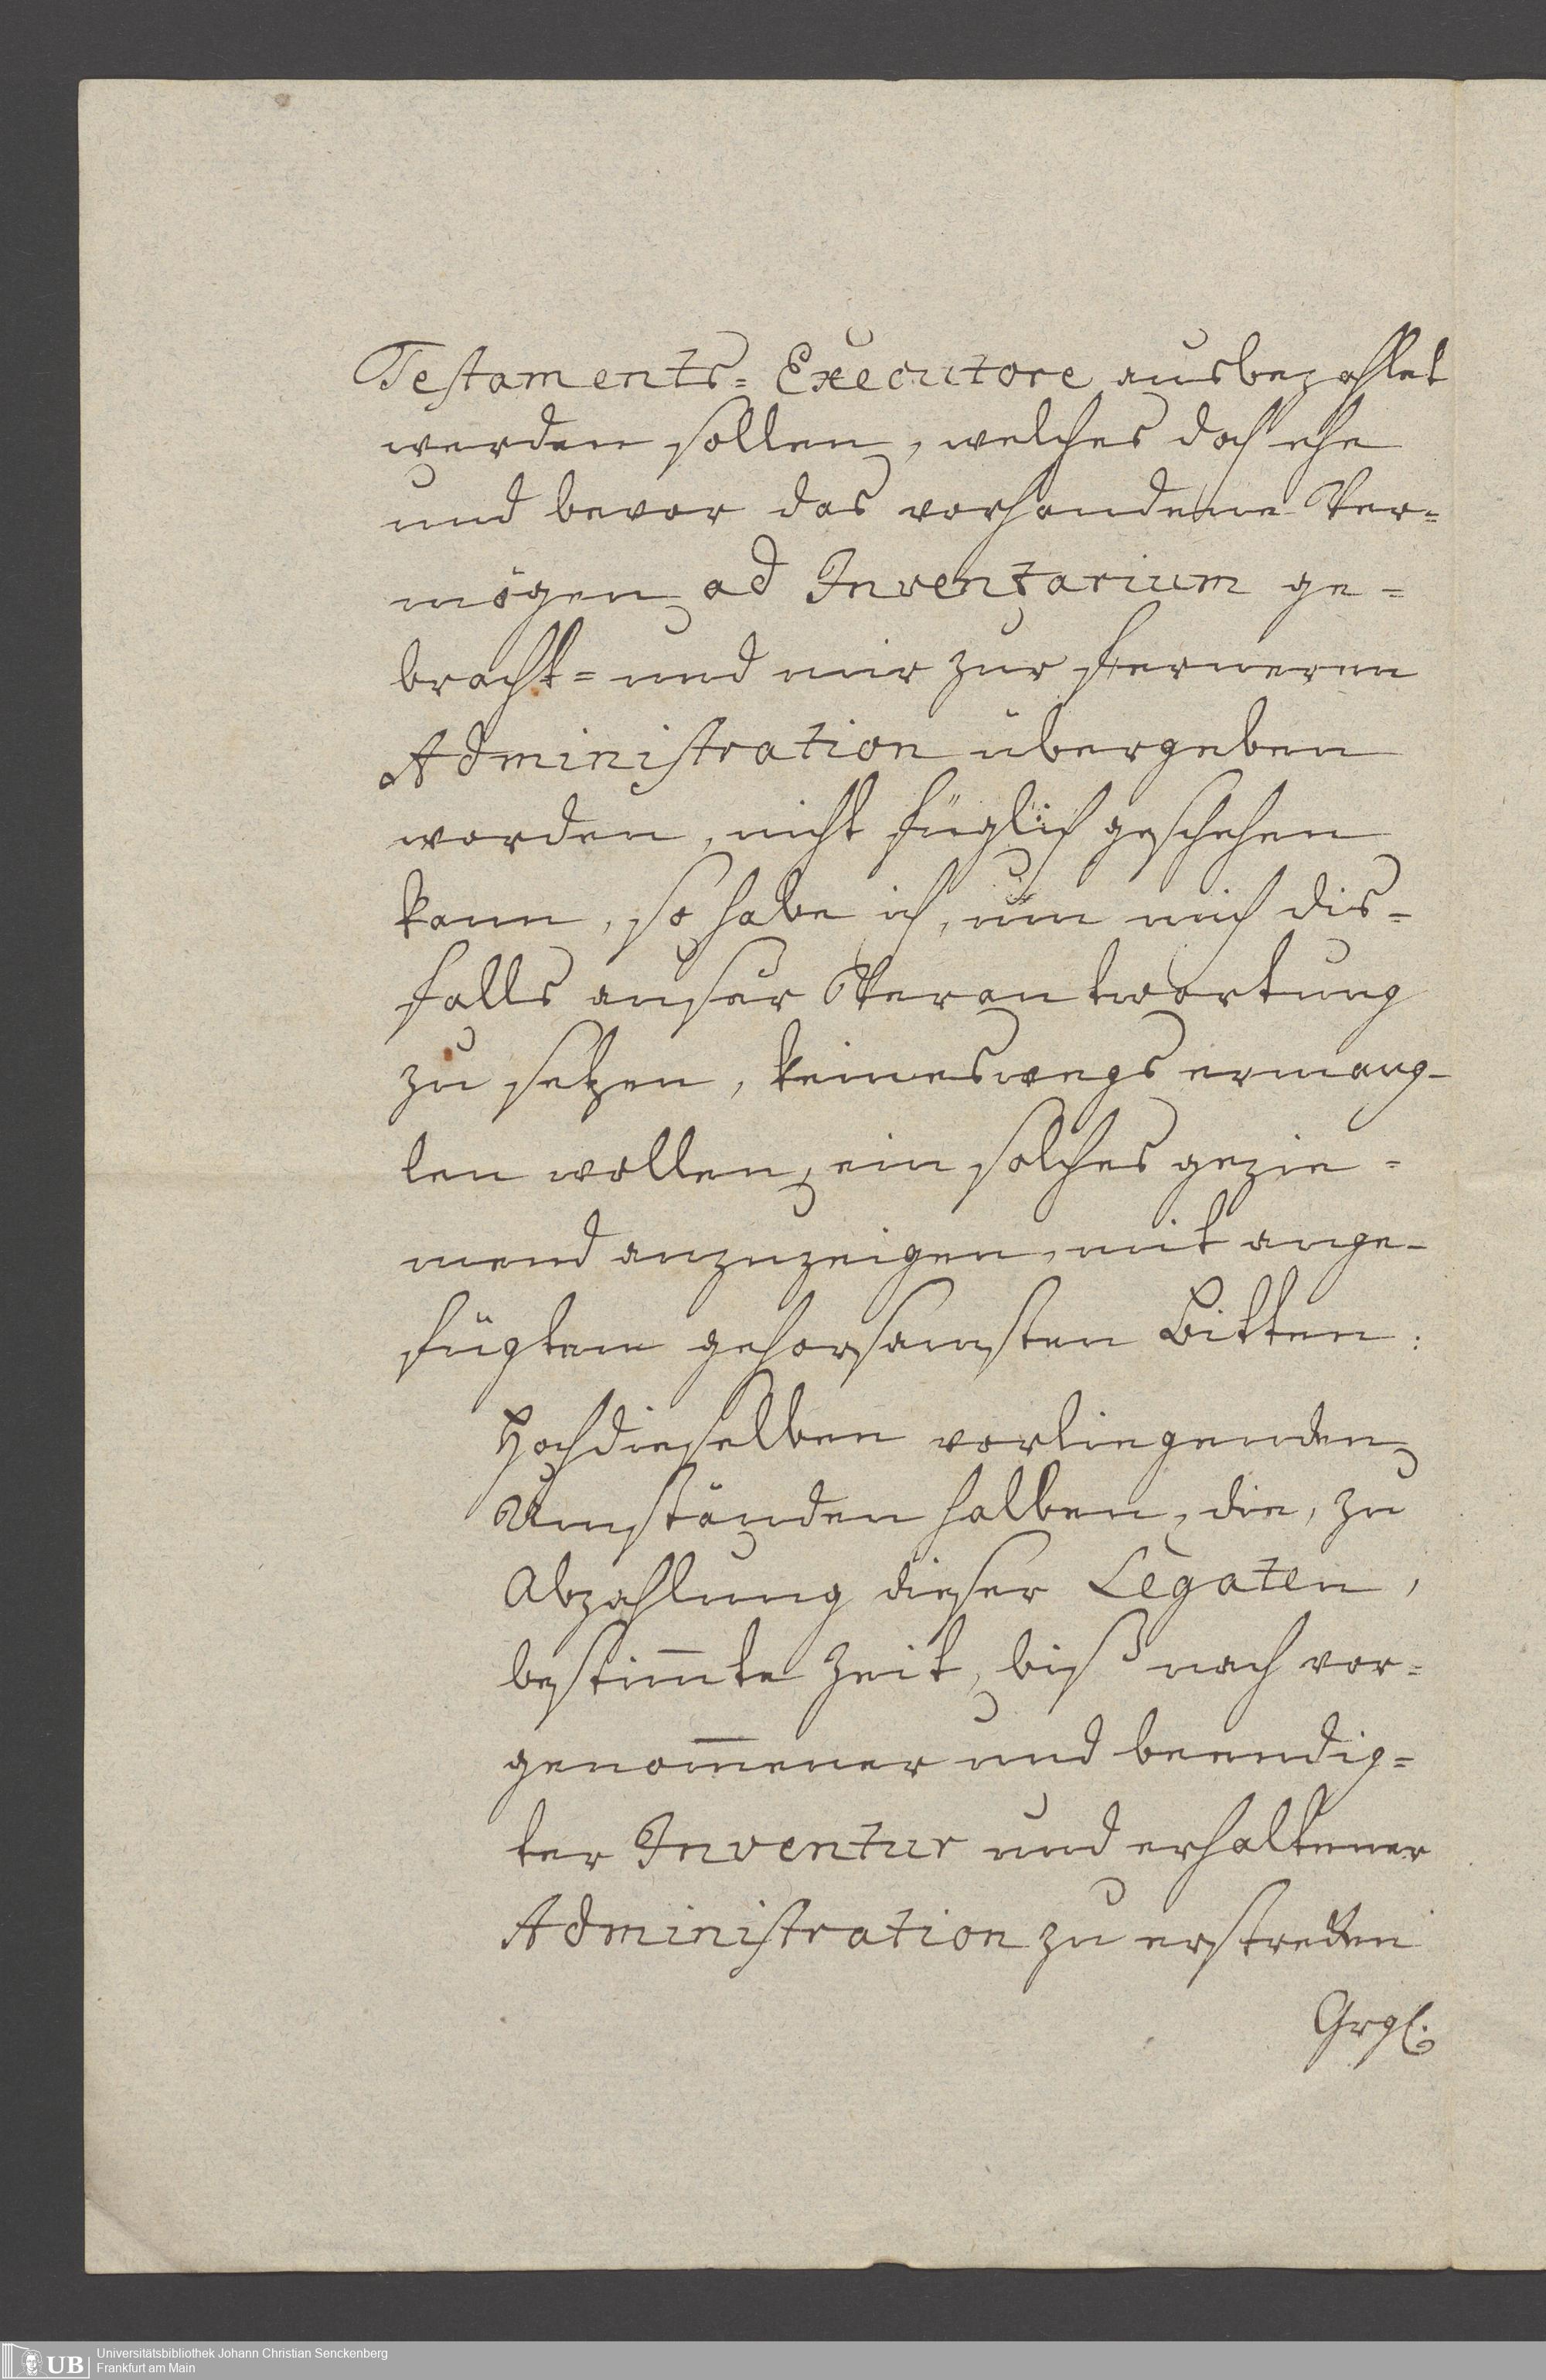 Testaments-Executore ausbezahlet
werden sollen, welches doch ehe
und bevor das vorhandene Ver-
mögen ad Inventarium ge-
bracht- und mir zur ferneren
Administration übergeben
worden, nicht füglich geschehen
kann, so habe ich, um mich dis-
falls ausser Verantwortung
zu setzen, keineswegs ermang-
len wollen, ein solches gezie-
mend anzuzeigen, mit ange-
fügtem gehorsamsten Bitten:
Hochdieselben vorliegenden
Umständen halben, die, zu
Abzahlung dieser Legaten,
bestimmte Zeit, biß nach vor-
genommener und beendig-
ter Inventur und erhaltener
Administration zu erstrecken
UB
Universitätsbibliothek Johann Christian Senckenberg
Frankfurt am Main